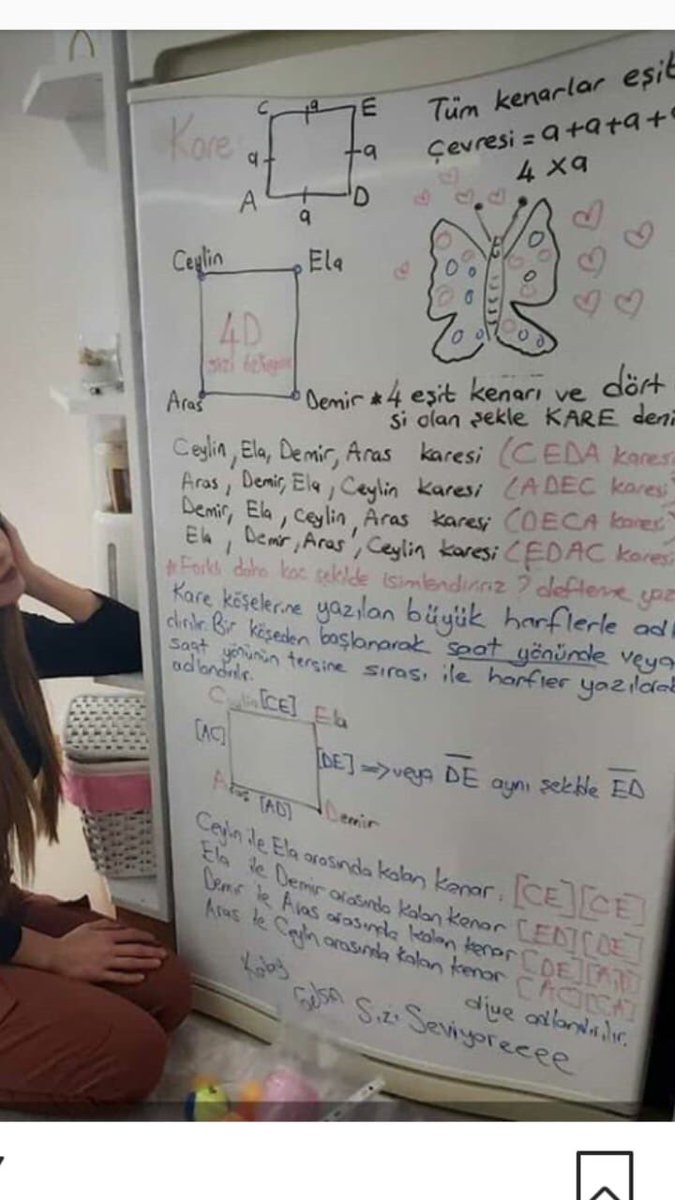 Kare
C a E
a a
A D
a
Tüm kenarlar eşit
Çevresi = a+a+a+
4 x a
Ceylin Ela
4D
sizi
Aras Demir
* 4 eşit kenarı ve dört
si olan şekle KARE deni
Ceylin, Ela, Demir, Aras karesi (CEDA karesi
Aras, Demir, Ela, Ceylin karesi (ADEC karesi)
Demir, Ela, Ceylin, Aras karesi (DECA karesi)
Ela, Demir, Aras, Ceylin karesi (EDAC karesi
* Farklı daha kaç şekilde isimlendiririz? deftere yaz
Kare köşelerine yazılan büyük harflerle adl
dırılır. Bir köşeden başlanarak saat yönünde veya
saat yönünün tersine sırası ile harfler yazılarak
adlandırılır.
Ceylin [CE] Ela
[AC] [DE] => veya DE aynı şekilde ED
Aras [AD] Demir
Ceylin ile Ela arasında kalan kenar. [CE] [CE]
Ela ile Demir arasında kalan kenar [ED] [DE]
Demir ile Aras arasında kalan kenar [DE]
Aras ile Ceylin arasında kalan kenar [AC] [CA]
diye adlandırılır.
Sizi Seviyoreeee